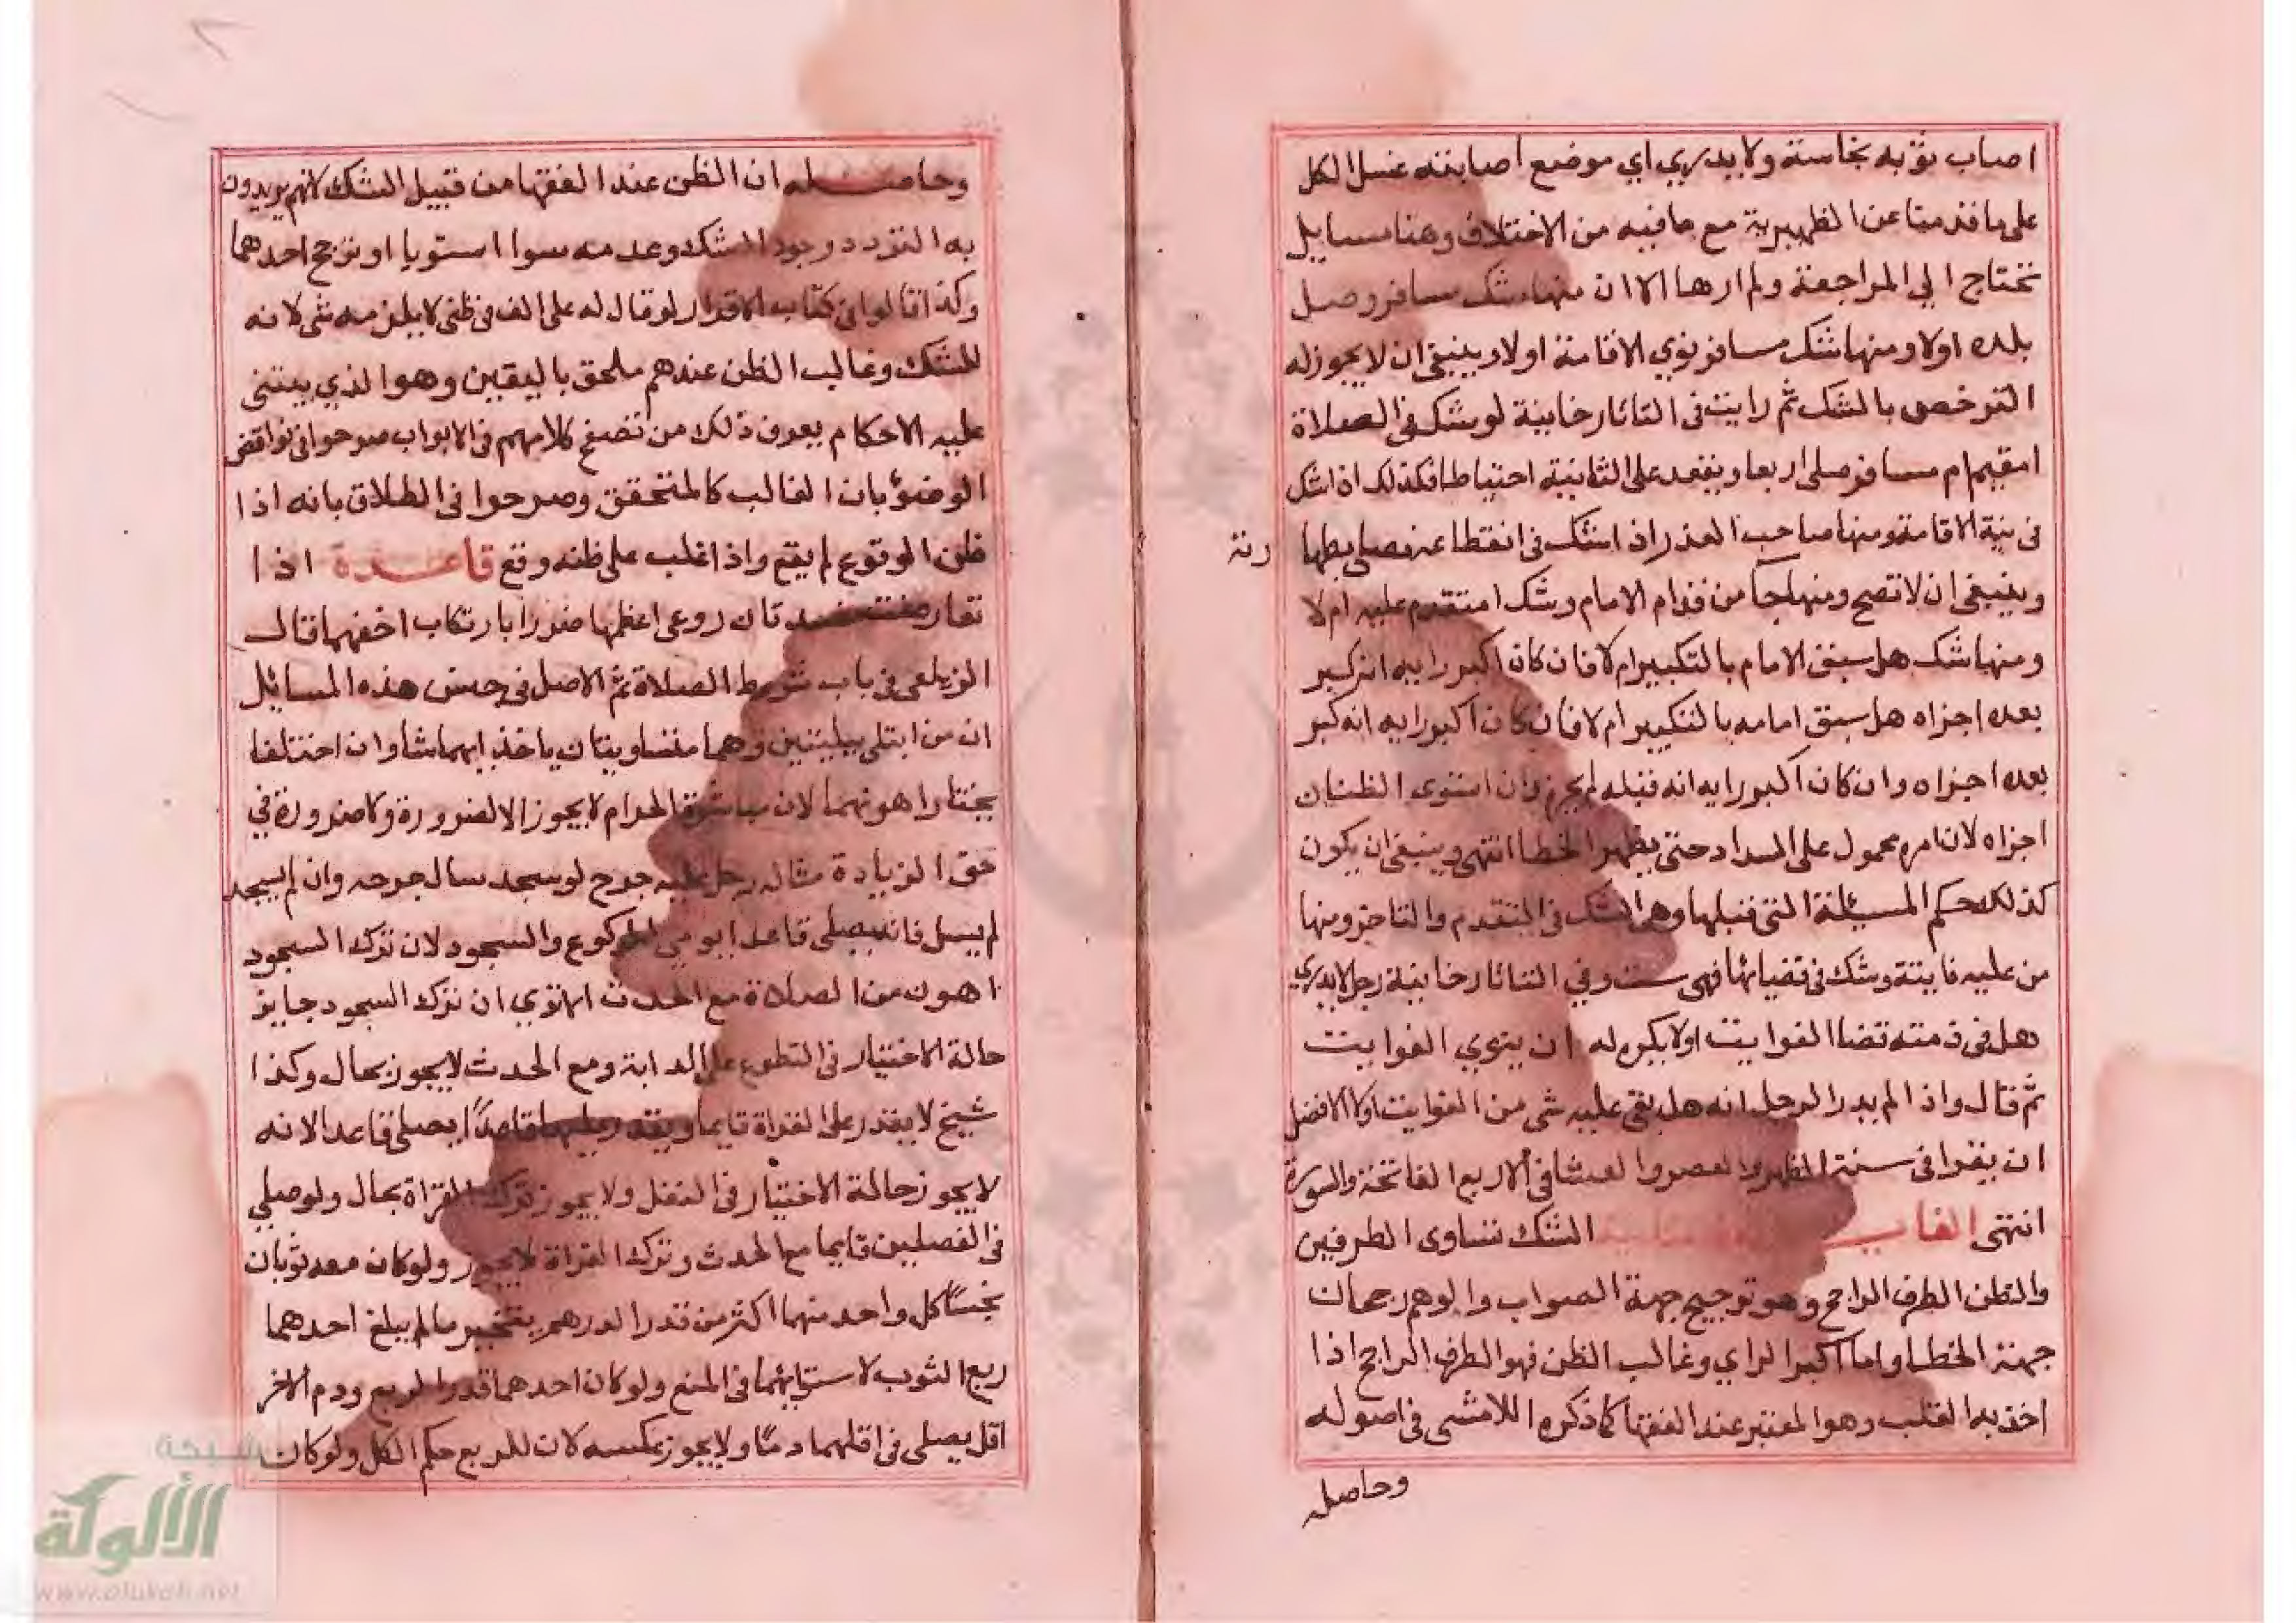 اصاب ثوبه نجاسة ولا يدري اي موضع اصابته غسل الكل
على ما قدمنا عن الظهيرية مع ما فيه من الاختلاف وهنا مسايل
تحتاج الي المراجعة ولم ارها الان منها شك مسافر وصل
بلده اولا ومنها شك مسافر نوي الاقامة اولا وينبغي ان لا يجوز له
الترخص بالشك ثم رايت في التاتارخانية لو شك في الصلاة
امقيم ام مسافر صلى اربعا ويقعد على الثانية احتياطا فكذلك اذا شك
في نية الاقامة ومنها صاحب العذر اذا شك في انقطاعه فصلى بطها رته
وينبغي ان لا تصح ومنها جا من قدام الامام وشك امتقدم عليه ام لا
ومنها شك هل سبق الامام بالتكبير ام لا فان كان اكبر رايه انه كبر
بعده اجزاه هل سبق امامه بالتكبير ام لا فان كان اكبر رايه انه كبر
بعده اجزاه وان كان اكبر رايه انه قبله لم يجزه وان استوى الظنان
اجزاه لان امره محمول على السداد حتى يظهر الخطا انتهى وينبغي ان يكون
كذلك حكم المسئلة التي قبلها وهي الشك في التقدم والتاخر ومنها
من عليه فايتة وشك في قضائها فهي ستة وفي التتاتارخانية رجل لا يدري
هل في ذمته قضا الفوايت اولا يكره له ان ينوي الفوايت
ثم قال واذا لم يدر الرجل انه هل بقي عليه شي من الفوايت اولا الافضل
ان يقرا في سنة الظهر والعصر والعشا في الاربع الفاتحة والسورة
انتهى الفا الشك تساوى الطرفين
والظن الطرف الراجح وهو ترجيح جهة الصواب والوهم رجحان
جهة الخطا واما اكبر الراي وغالب الظن فهو الطرف الراجح اذا
اخذ به القلب وهو المعتبر عند الفقها كما ذكره اللامشى في اصوله
وحاصله
وحاصله ان الظن عند الفقها من قبيل الشك لانهم يريدون
به التردد وجود الشك وعدمه سوا استويا او ترجح احدهما
وكذا قالوا في كتاب الاقرار لو قال له على الف في ظني لا يلزمه شي لانه
للشك وغالب الظن عندهم ملحق باليقين وهو الذي يبتنى
عليه الاحكام يعرف ذلك من تصفح كلامهم في الابواب صرحوا في نواقض
الوضؤ بان الغالب كالمتحقق وصرحوا في الطلاق بانه اذا
ظن الوقوع لم يقع واذا غلب على ظنه وقع قاعدة اذا
تعارض مفسدتان روعى اعظمها ضررا بارتكاب اخفهما قال
الزيلعي في باب شروط الصلاة ثم الاصل في جنس هذه المسائل
ان من ابتلى ببليتين وهما متساويتان ياخذ ايهما شا وان اختلفا
يختار اهونهما لان مباشرة الحرام لا يجوز الا لضرورة ولا ضرورة في
حق الزيادة مثاله رجل عليه جرح لو سجد سال جرحه وان لم يسجد
لم يسل فانه يصلى قاعدا يومي للركوع والسجود لان ترك السجود
اهون من الصلاة مع الحدث الا تري ان ترك السجود جايز
حالة الاختيار في التطوع على الدابة ومع الحدث لا يجوز بحال وكذا
شيخ لا يقدر على القراة قايما ويقدر عليها قاعدًا يصلى قاعدا لانه
لا يجوز حالة الاختيار في النفل ولا يجوز ترك القراة بحال ولو صلي
في الفصلين قايما مع الحدث وترك القراة لا يجوز ولو كان معه ثوبان
نجسًا كل واحد منهما اكثر من قدر الدرهم يتخير ما لم يبلغ احدهما
ربع الثوب لاستوائهما في المنع ولو كان احدهما قدر الربع ودم الاخر
اقل يصلى في اقلهما دمًا ولا يجوز عكسه لان للربع حكم الكل ولو كان
شبكة
الألوكة
www.alukah.net